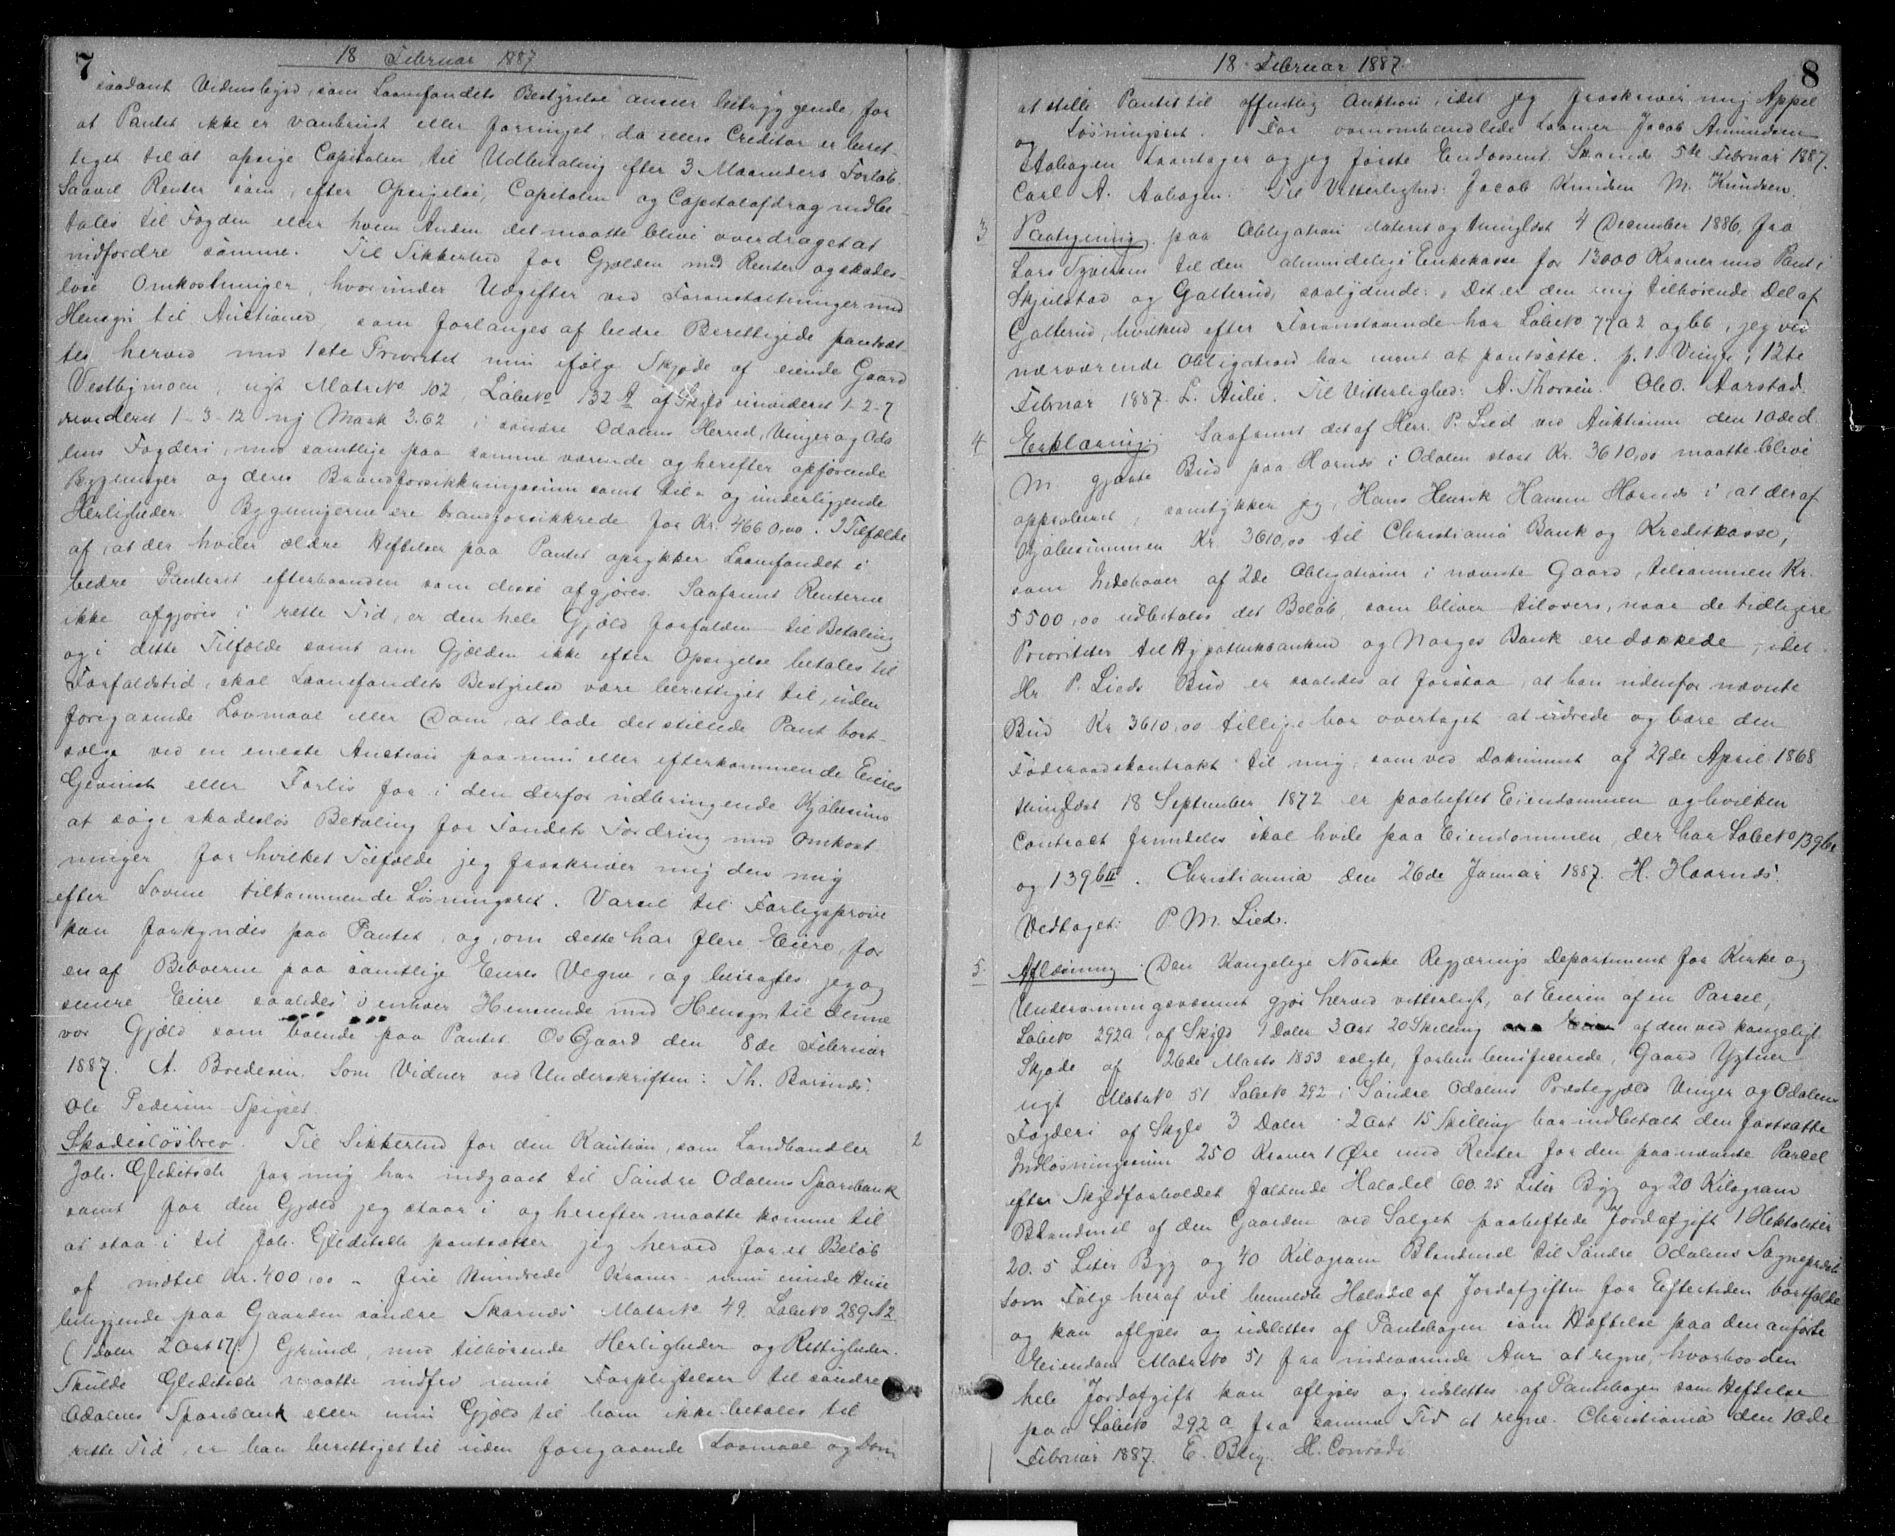 7
18 Februar 1887
saadant Vidnesbyrd, som Laanefondets Bestyrelse anseer betryggende, for
at Pantet ikke er vanbrugt eller forringet, da ellers Creditor er beret-
tiget til at opsige Capitalen til Udbetaling efter 3 Maaneders Forløb.
Saavel Renter som, efter Opsigelse, Capitalen og Capitalafdrag indbe-
tales til Fogden eller hvem Anden det maatte blive overdraget at
indfordre samme. Til Sikkerhed for Gjælden med Renter og skades-
løse Omkostninger, hvorunder Udgifter ved Foranstaltninger med
Hensyn til Auctioner som forlanges af bedre Berettigede pantsæt-
tes herved med 1ste Prioritet min ifølge Skjøde af eiende Gaard
Vestbymoen, ugt Matr No 102, Løbeno 132 A af Skyld urevideret 1-2-7
revideret 1-3-12 ny Mark 3.62 i søndre Odalens Herred, Vinger og Oda-
lens Fogderi, med samtlige paa samme værende og herefter opførende
Bygninger og deres Brandforsikkringssum samt til- og underliggende
Herligheder. Bygningerne ere brandforsikkrede for Kr. 4660,00. I Tilfælde
af, at der hviler ældre Heftelser paa Pantet oprykker Laanefondet i
bedre Panteret efterhaanden som disse afgjøres. Saafremt Renterne
ikke afgjøres i rette Tid, er den hele Gjæld forfalden til Betaling
og i dette Tilfælde samt om Gjælden ikke efter Opsigelse betales til
Forfaldstid, skal Laanefondets Bestyrelse være berettiget til, uden
foregaaende Lovmaal eller Dom, at lade det stillede Pant bort-
sælge ved en eneste Auction paa min eller efterkommende Eieres
Gevinst eller Forlis for i den derfor udbringende Kjøbesum
at søge skadesløs Betaling for Fondets Fordring med Omkost
ninger for hvilket Tilfælde jeg fraskriver mig den mig
efter Lovene tilkommende Løsningsret. Varsel til Forligsprøve
kan forkyndes paa Pantet, og, om dette har flere Eiere, for
en af Beboerne paa samtlige Eieres Vegne, og betragtes jeg og
senere Eiere saaledes i enhver Henseende med Hensyn til denne
vor Gjæld som boende paa Pantet. Os Gaard den 8de Februar
1887. A. Bredesen. Som Vidner ved Underskriften: Th. Borsnds
Ole Pedersen Spigset.
Skadesløsbrev. Til Sikkerhed for den Kaution, som Landhandler 2
Joh. Gleditsch for mig har indgaaet til Søndre Odalens Sparebank
samt for den Gjæld jeg staar i og herefter maatte komme til
at staa i til Joh. Gleditsch pantsætter jeg herved for et Beløb
af indtil Kr. 400,00 - fire Hundrede Kroner - mine eiende Huse
beliggende paa Gaarden søndre Skarnæs Matr No 49. Løbeno 289 A2
(1 Daler 2 Ort 17 ) Grund, med tilhørende Herligheder og Rettigheder.
Skulde Gleditsch maatte indfri mine Forpligtelser til søndre
Odalens Sparebank eller min Gjæld til ham ikke betales til
rette Tid, er han berettiget til uden foregaaende Lovmaal og Dom
18 Februar 1887.
8
at stille Pantet til offentlig Auktion, idet jeg fraskriver mig Appel
og Løsningsret. For ovenomhandlede Laan er Jacob Amundsen
Aabogen Laantager og jeg første Endossent. Skarnæs 5te Februar 1887.
Carl A. Aabogen. Til Vitterlighed: Jacob Knudsen M. Knudsen.
3 Paategning paa Obligation dateret og thinglæst 4 December 1886, fra
Lars Syversen til den almindelige Enkekasse for 13000 Kroner med Pant i
Skjulstad og Galterud, saalydende: Det er den mig tilhørende Del af
Galterud, hvilken efter Foranstaaende har Løbeno 77a2 og b6, jeg ved
nærværende Obligation har ment at pantsætte. p.t. Vinger, 12te
Februar 1887. L. Aulie. Til Vitterlighed: A. Thorsen. Ole O. Aarstad.
4 Erklæring. Saafremt det af Herr P. Lied ved Auktionen den 10de d.
M. gjorte Bud paa Hornæs i Odalen stort Kr. 3610,00 maatte blive
approberet, samtykker jeg, Hans Henrik Hansen Hornæs i, at der af
Kjøbesummen Kr. 3610,00 til Christiania Bank og Kreditkasse,
som Indehaver af 2de Obligationer i nævnte Gaard, tilsammen Kr.
5500,00 udbetales det Beløb, som bliver tilovers, naar de tidligere
Prioriteter til Hypothekbanken og Norges Bank ere dækkede, idet
Hr. P. Lieds Bud er saaledes at forstaa, at han udenfor nævnte
Bud Kr 3610,00 tillige har overtaget at udrede og bære den
Føderaadskontrakt til mig, som ved Dokument af 29de April 1868
thinglæst 18 September 1872 er paaheftet Eiendommen og hvilken
Contract fremdeles skal hvile paa Eiendommen, der har Løbeno 139b
og 139b III. Christiania den 26de Januar 1887. H. Haarnds.
Vedtaget: P. M. Lied.
5. Aflæsning. Den Kongelige Norske Regjerings Departement for Kirke og
Undervisningsvæsenet gjør herved vitterligt, at Eieren af en Parcel,
Løbeno 292a, af Skyld 1 Daler 3 Ort 20 Skilling af den ved kongeligt
Skjøde af 26de Marts 1853 solgte, forhen beneficerede, Gaard Ygtner
ugt Matr No 51 Løbeno 292 i Søndre Odalens Præstegjæld Vinger og Odalens
Fogderi af Skyld 3 Daler 2 Ort 15 Skilling har indbetalt den fastsatte
Indløsningssum 250 Kroner 1 Øre med Renter for den paa nævnte Parcel
efter Skyldforholdet faldende Halvdel 60.25 Liter Byg og 20 Kilogram
Blandmel af den Gaarden ved Salget paaheftede Jordafgift 1 Hektoliter
20.5 Liter Byg og 40 Kilogram Blandmel til Søndre Odalens Sognepræst.
Som Følge heraf vil bemeldte Halvdel af Jordafgiften for Eftertiden bortfalde
og kan aflyses og udslettes af Pantebogen som Hæftelse paa den anførte
Eiendom Matr No 51 fra indeværende Aar at regne, hvorhos den
hele Jordafgift kan aflyses og udslettes af Pantebogen som Heftelse
paa Løbeno 292a fra samme Tid at regne. Christiania den 10de
Februar 1887. E. Blix. H. Conradi